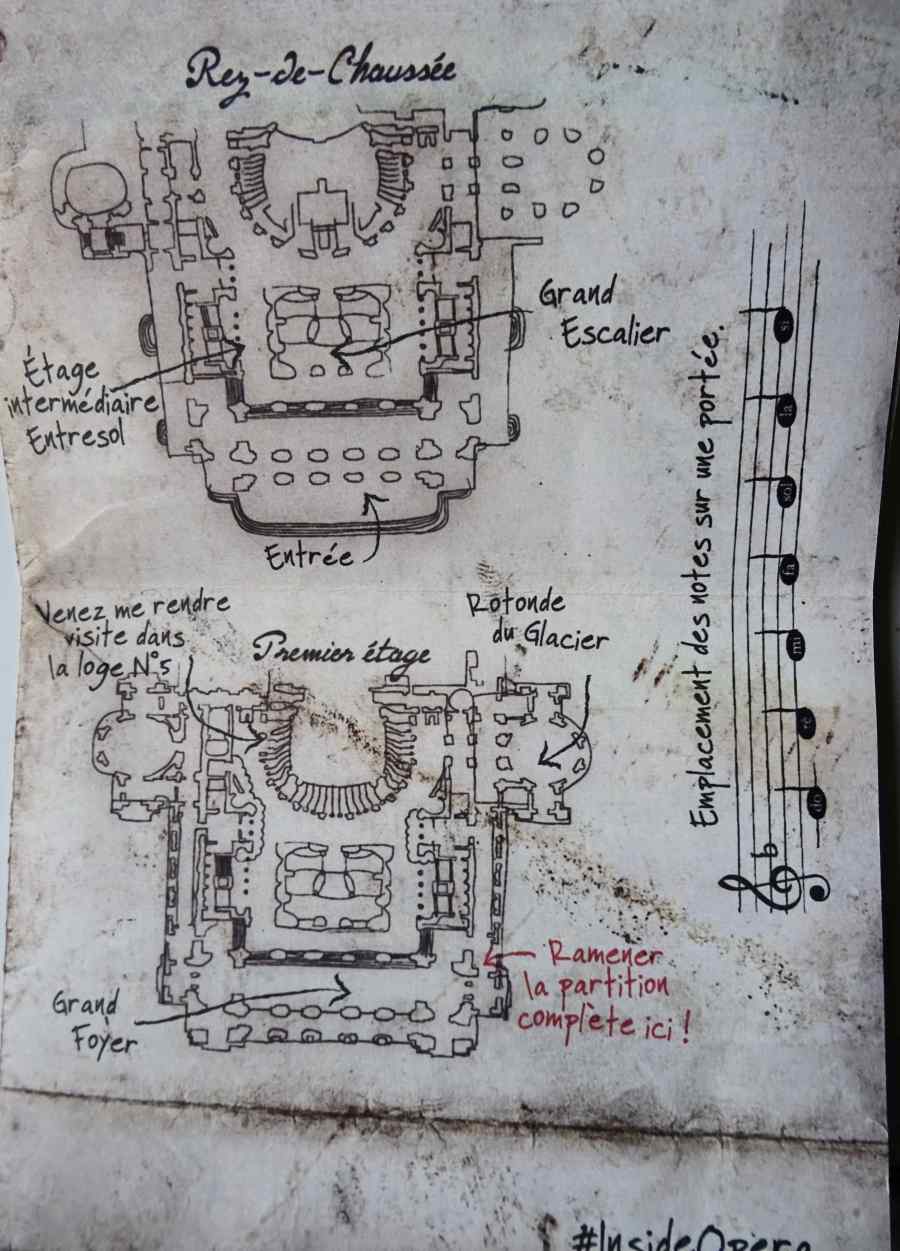 Rez-de-Chaussée
Grand
Escalier
Étage
intermédiaire
Entresol
Entrée
Venez me rendre
visite dans
la loge N°5
Premier étage
Rotonde
du Glacier
Grand
Foyer
Ramener
la partition
complète ici !
Emplacement des notes sur une portée.
do
ré
mi
fa
sol
la
si
#InsideOpera